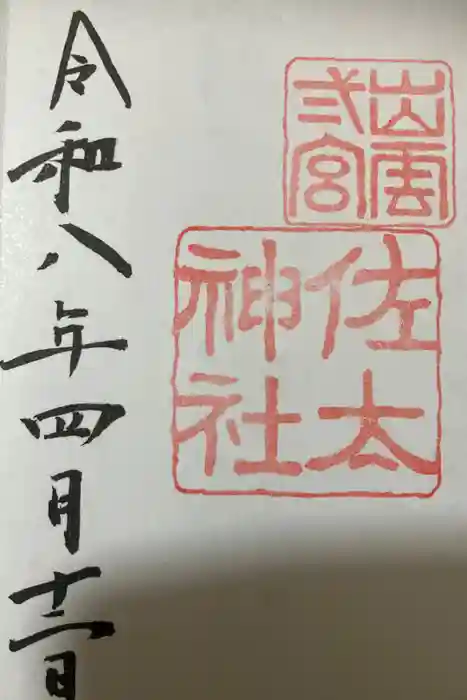 出雲
弍宮
佐太
神社
令和八年四月十二日